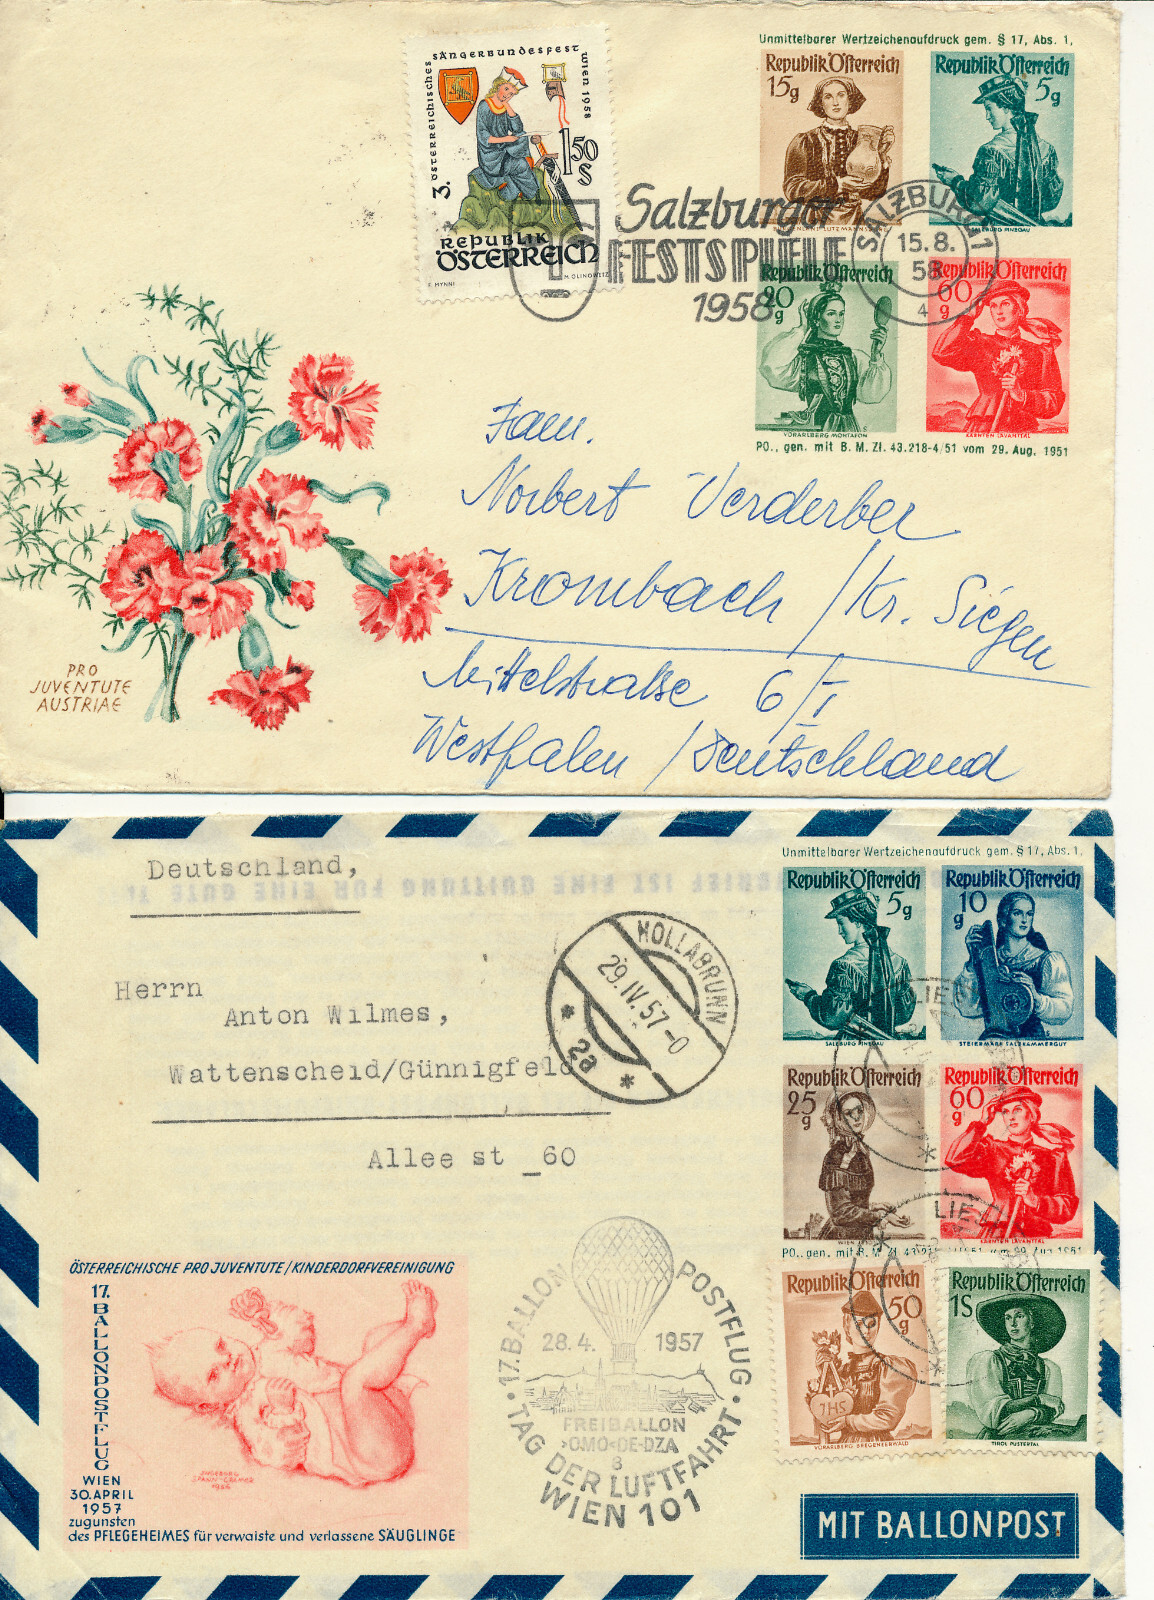 3. ÖSTERREICHISCHES SÄNGERBUNDESFEST WIEN 1958
1,50 S
REPUBLIK
ÖSTERREICH
Salzburger
FESTSPIELE
1958
SALZBURG 1
15.8.
58
4
Unmittelbarer Wertzeichenaufdruck gem. § 17, Abs. 1,
Republik Österreich
15g
Republik Österreich
5g
SALZBURG PINZGAU
Republik Österreich
20g
VORARLBERG MONTAFON
Republik Österreich
60g
KÄRNTEN LAVANTTAL
PO., gen. mit B. M. Zl. 43.218-4/51 vom 29. Aug. 1951
Fam.
Norbert Verderber
Krombach / Kr. Siegen
Mittelstraße 6/I
Westfalen / Deutschland
PRO
JUVENTUTE
AUSTRIAE
Deutschland,
Herrn
Anton Wilmes,
Wattenscheid/Günnigfeld
Allee st _60
HOLLABRUNN
29.IV.57-0
* 2a *
Unmittelbarer Wertzeichenaufdruck gem. § 17, Abs. 1,
Republik Österreich
5g
SALZBURG PINZGAU
Republik Österreich
10g
STEIERMARK SALZKAMMERGUT
Republik Österreich
25g
WIEN
Republik Österreich
60g
KÄRNTEN LAVANTTAL
PO., gen. mit B. M. Zl.
LIE
LIE
Republik Österreich
50g
JHS
VORARLBERG BREGENZERWALD
Republik Österreich
1S
TIROL PUSTERTAL
ÖSTERREICHISCHE PRO JUVENTUTE/KINDERDORFVEREINIGUNG
17. BALLONPOSTFLUG
WIEN
30. APRIL
1957
zugunsten
des PFLEGEHEIMES für verwaiste und verlassene SÄUGLINGE
INGEBORG
SPANN-CRAMER
1956
17. BALLON POSTFLUG
28.4. 1957
FREIBALLON
›OMO‹OE-DZA
8
TAG DER LUFTFAHRT
WIEN 101
MIT BALLONPOST